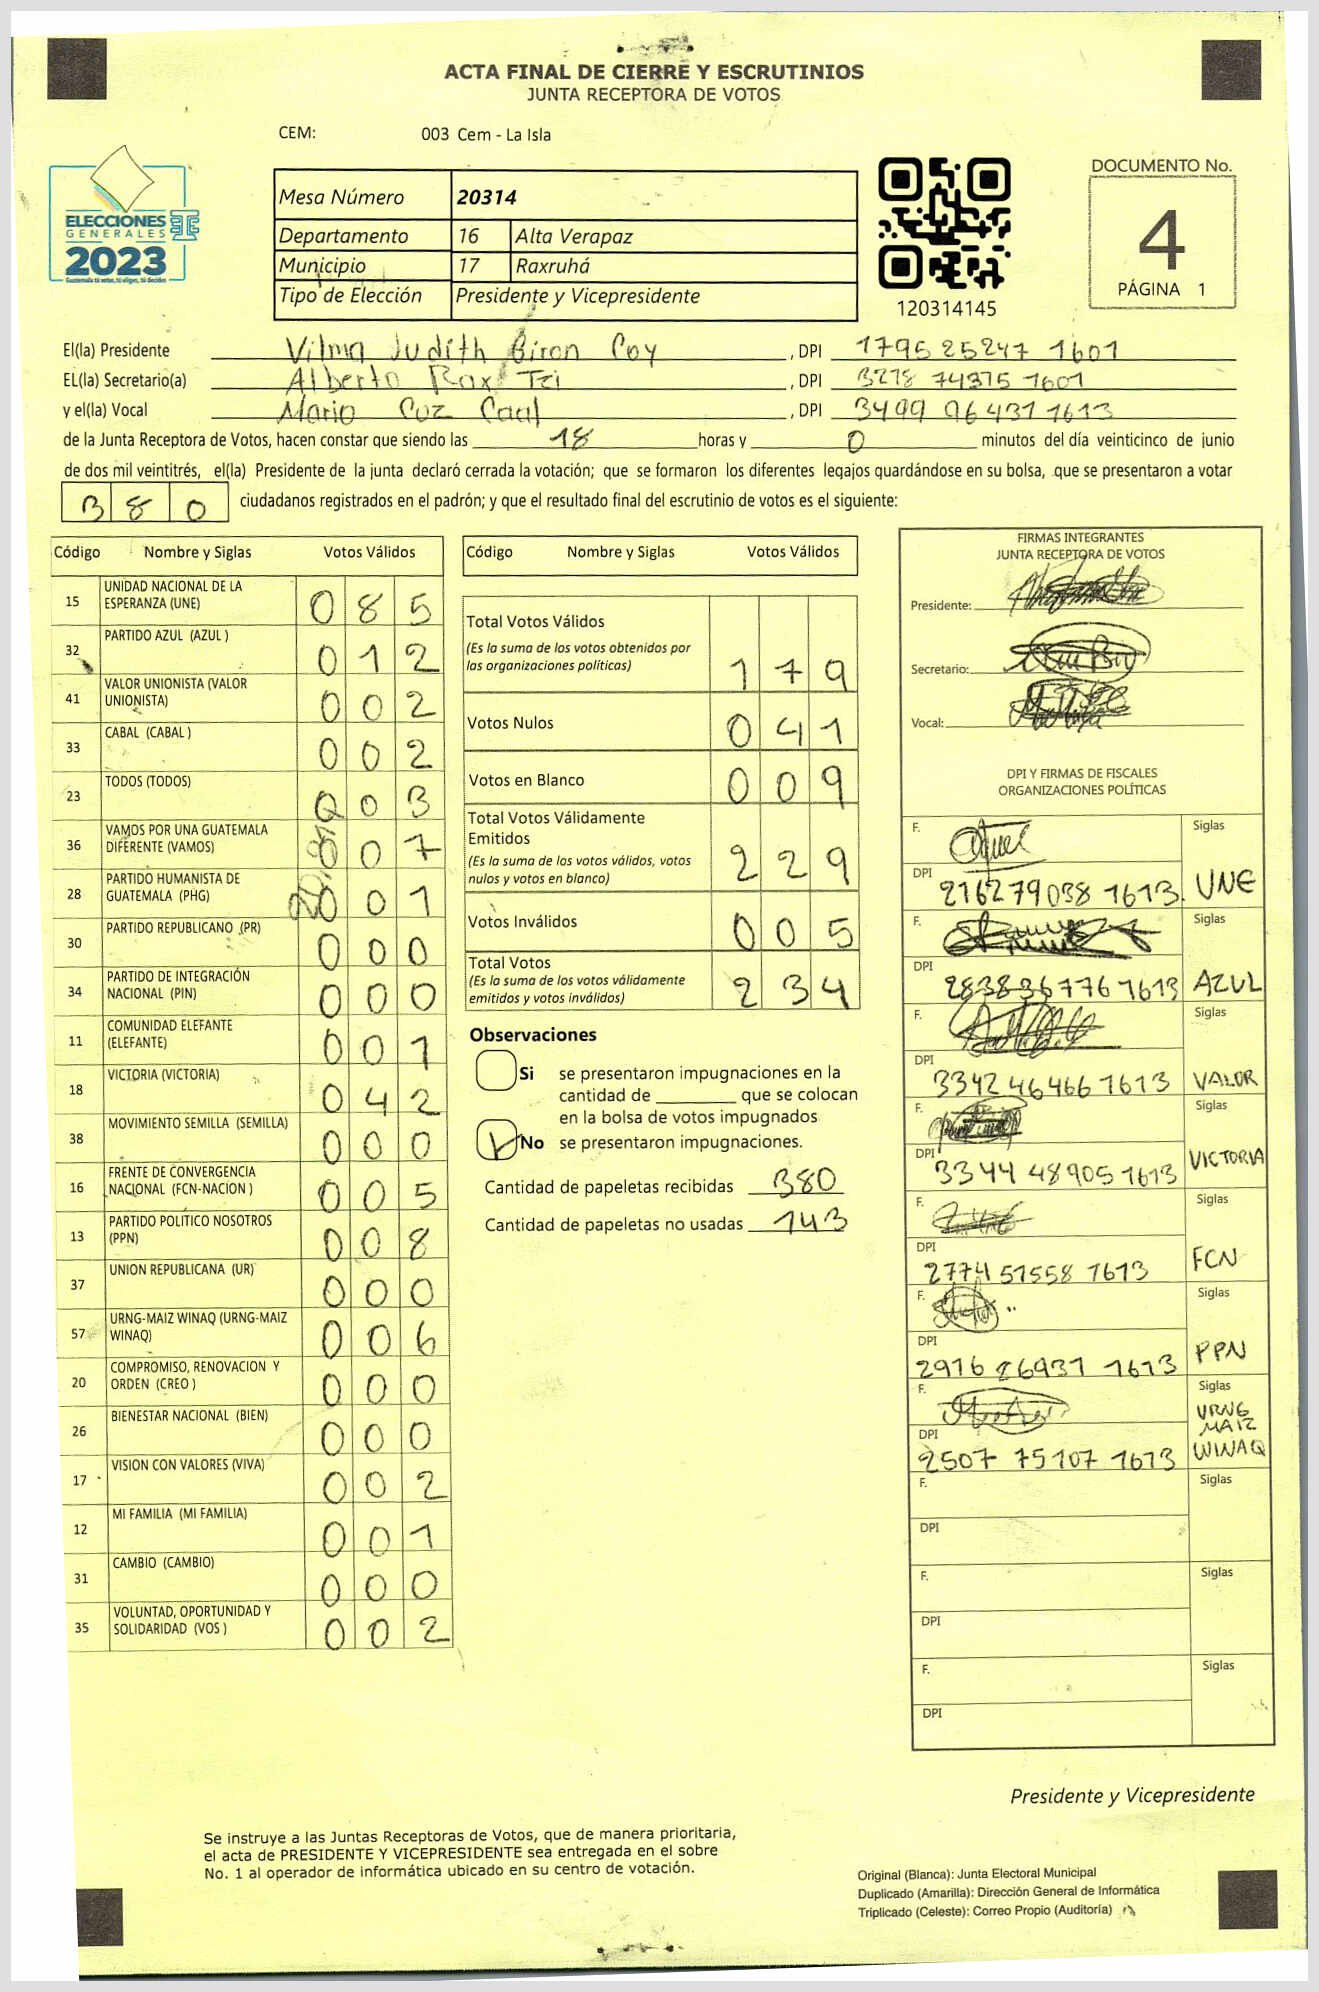 ACTA FINAL DE CIERRE Y ESCRUTINIOS
JUNTA RECEPTORA DE VOTOS
CEM: 003 Cem - La Isla
ELECCIONES
GENERALES
2023
Guatemala tú votas, tú eliges, tú decides
Mesa Número 20314
Departamento 16 Alta Verapaz
Municipio 17 Raxruhá
Tipo de Elección Presidente y Vicepresidente
120314145
DOCUMENTO No.
4
PÁGINA 1
El(la) Presidente Vilma Judith Biron Coy , DPI 1795 25247 1601
EL(la) Secretario(a) Alberto Rax Tzi , DPI 3278 74375 1601
y el(la) Vocal Mario Cuz Caal , DPI 3499 96431 1613
de la Junta Receptora de Votos, hacen constar que siendo las 18 horas y 0 minutos del día veinticinco de junio
de dos mil veintitrés, el(la) Presidente de la junta declaró cerrada la votación; que se formaron los diferentes legajos guardándose en su bolsa, que se presentaron a votar
380 ciudadanos registrados en el padrón; y que el resultado final del escrutinio de votos es el siguiente:
Código Nombre y Siglas Votos Válidos
15 UNIDAD NACIONAL DE LA ESPERANZA (UNE) 085
32 PARTIDO AZUL (AZUL ) 012
41 VALOR UNIONISTA (VALOR UNIONISTA) 002
33 CABAL (CABAL ) 002
23 TODOS (TODOS) 003
36 VAMOS POR UNA GUATEMALA DIFERENTE (VAMOS) 007
28 PARTIDO HUMANISTA DE GUATEMALA (PHG) 001
30 PARTIDO REPUBLICANO (PR) 000
34 PARTIDO DE INTEGRACIÓN NACIONAL (PIN) 000
11 COMUNIDAD ELEFANTE (ELEFANTE) 001
18 VICTORIA (VICTORIA) 042
38 MOVIMIENTO SEMILLA (SEMILLA) 000
16 FRENTE DE CONVERGENCIA NACIONAL (FCN-NACION ) 005
13 PARTIDO POLITICO NOSOTROS (PPN) 008
37 UNION REPUBLICANA (UR) 000
57 URNG-MAIZ WINAQ (URNG-MAIZ WINAQ) 006
20 COMPROMISO, RENOVACION Y ORDEN (CREO ) 000
26 BIENESTAR NACIONAL (BIEN) 000
17 VISION CON VALORES (VIVA) 002
12 MI FAMILIA (MI FAMILIA) 001
31 CAMBIO (CAMBIO) 000
35 VOLUNTAD, OPORTUNIDAD Y SOLIDARIDAD (VOS ) 002
Código Nombre y Siglas Votos Válidos
Total Votos Válidos 179
(Es la suma de los votos obtenidos por
las organizaciones políticas)
Votos Nulos 041
Votos en Blanco 009
Total Votos Válidamente
Emitidos 229
(Es la suma de los votos válidos, votos
nulos y votos en blanco)
Votos Inválidos 005
Total Votos 234
(Es la suma de los votos válidamente
emitidos y votos inválidos)
Observaciones
Si se presentaron impugnaciones en la
cantidad de ________ que se colocan
en la bolsa de votos impugnados
No se presentaron impugnaciones.
Cantidad de papeletas recibidas 380
Cantidad de papeletas no usadas 143
FIRMAS INTEGRANTES
JUNTA RECEPTORA DE VOTOS
Presidente:
Secretario:
Vocal:
DPI Y FIRMAS DE FISCALES
ORGANIZACIONES POLÍTICAS
F. Siglas
DPI 216279038 1613 UNE
F. Siglas
DPI 2838 36776 1613 AZUL
F. Siglas
DPI 3342 46466 1613 VALOR
F. Siglas
DPI 3344 48905 1613 VICTORIA
F. Siglas
DPI 2774 51558 1613 FCN
F. Siglas
DPI 2916 26931 1613 PPN
F. Siglas
DPI 2507 75107 1613 URNG MAIZ WINAQ
F. Siglas
DPI
F. Siglas
DPI
F. Siglas
DPI
Presidente y Vicepresidente
Se instruye a las Juntas Receptoras de Votos, que de manera prioritaria,
el acta de PRESIDENTE Y VICEPRESIDENTE sea entregada en el sobre
No. 1 al operador de informática ubicado en su centro de votación.
Original (Blanca): Junta Electoral Municipal
Duplicado (Amarilla): Dirección General de Informática
Triplicado (Celeste): Correo Propio (Auditoría)